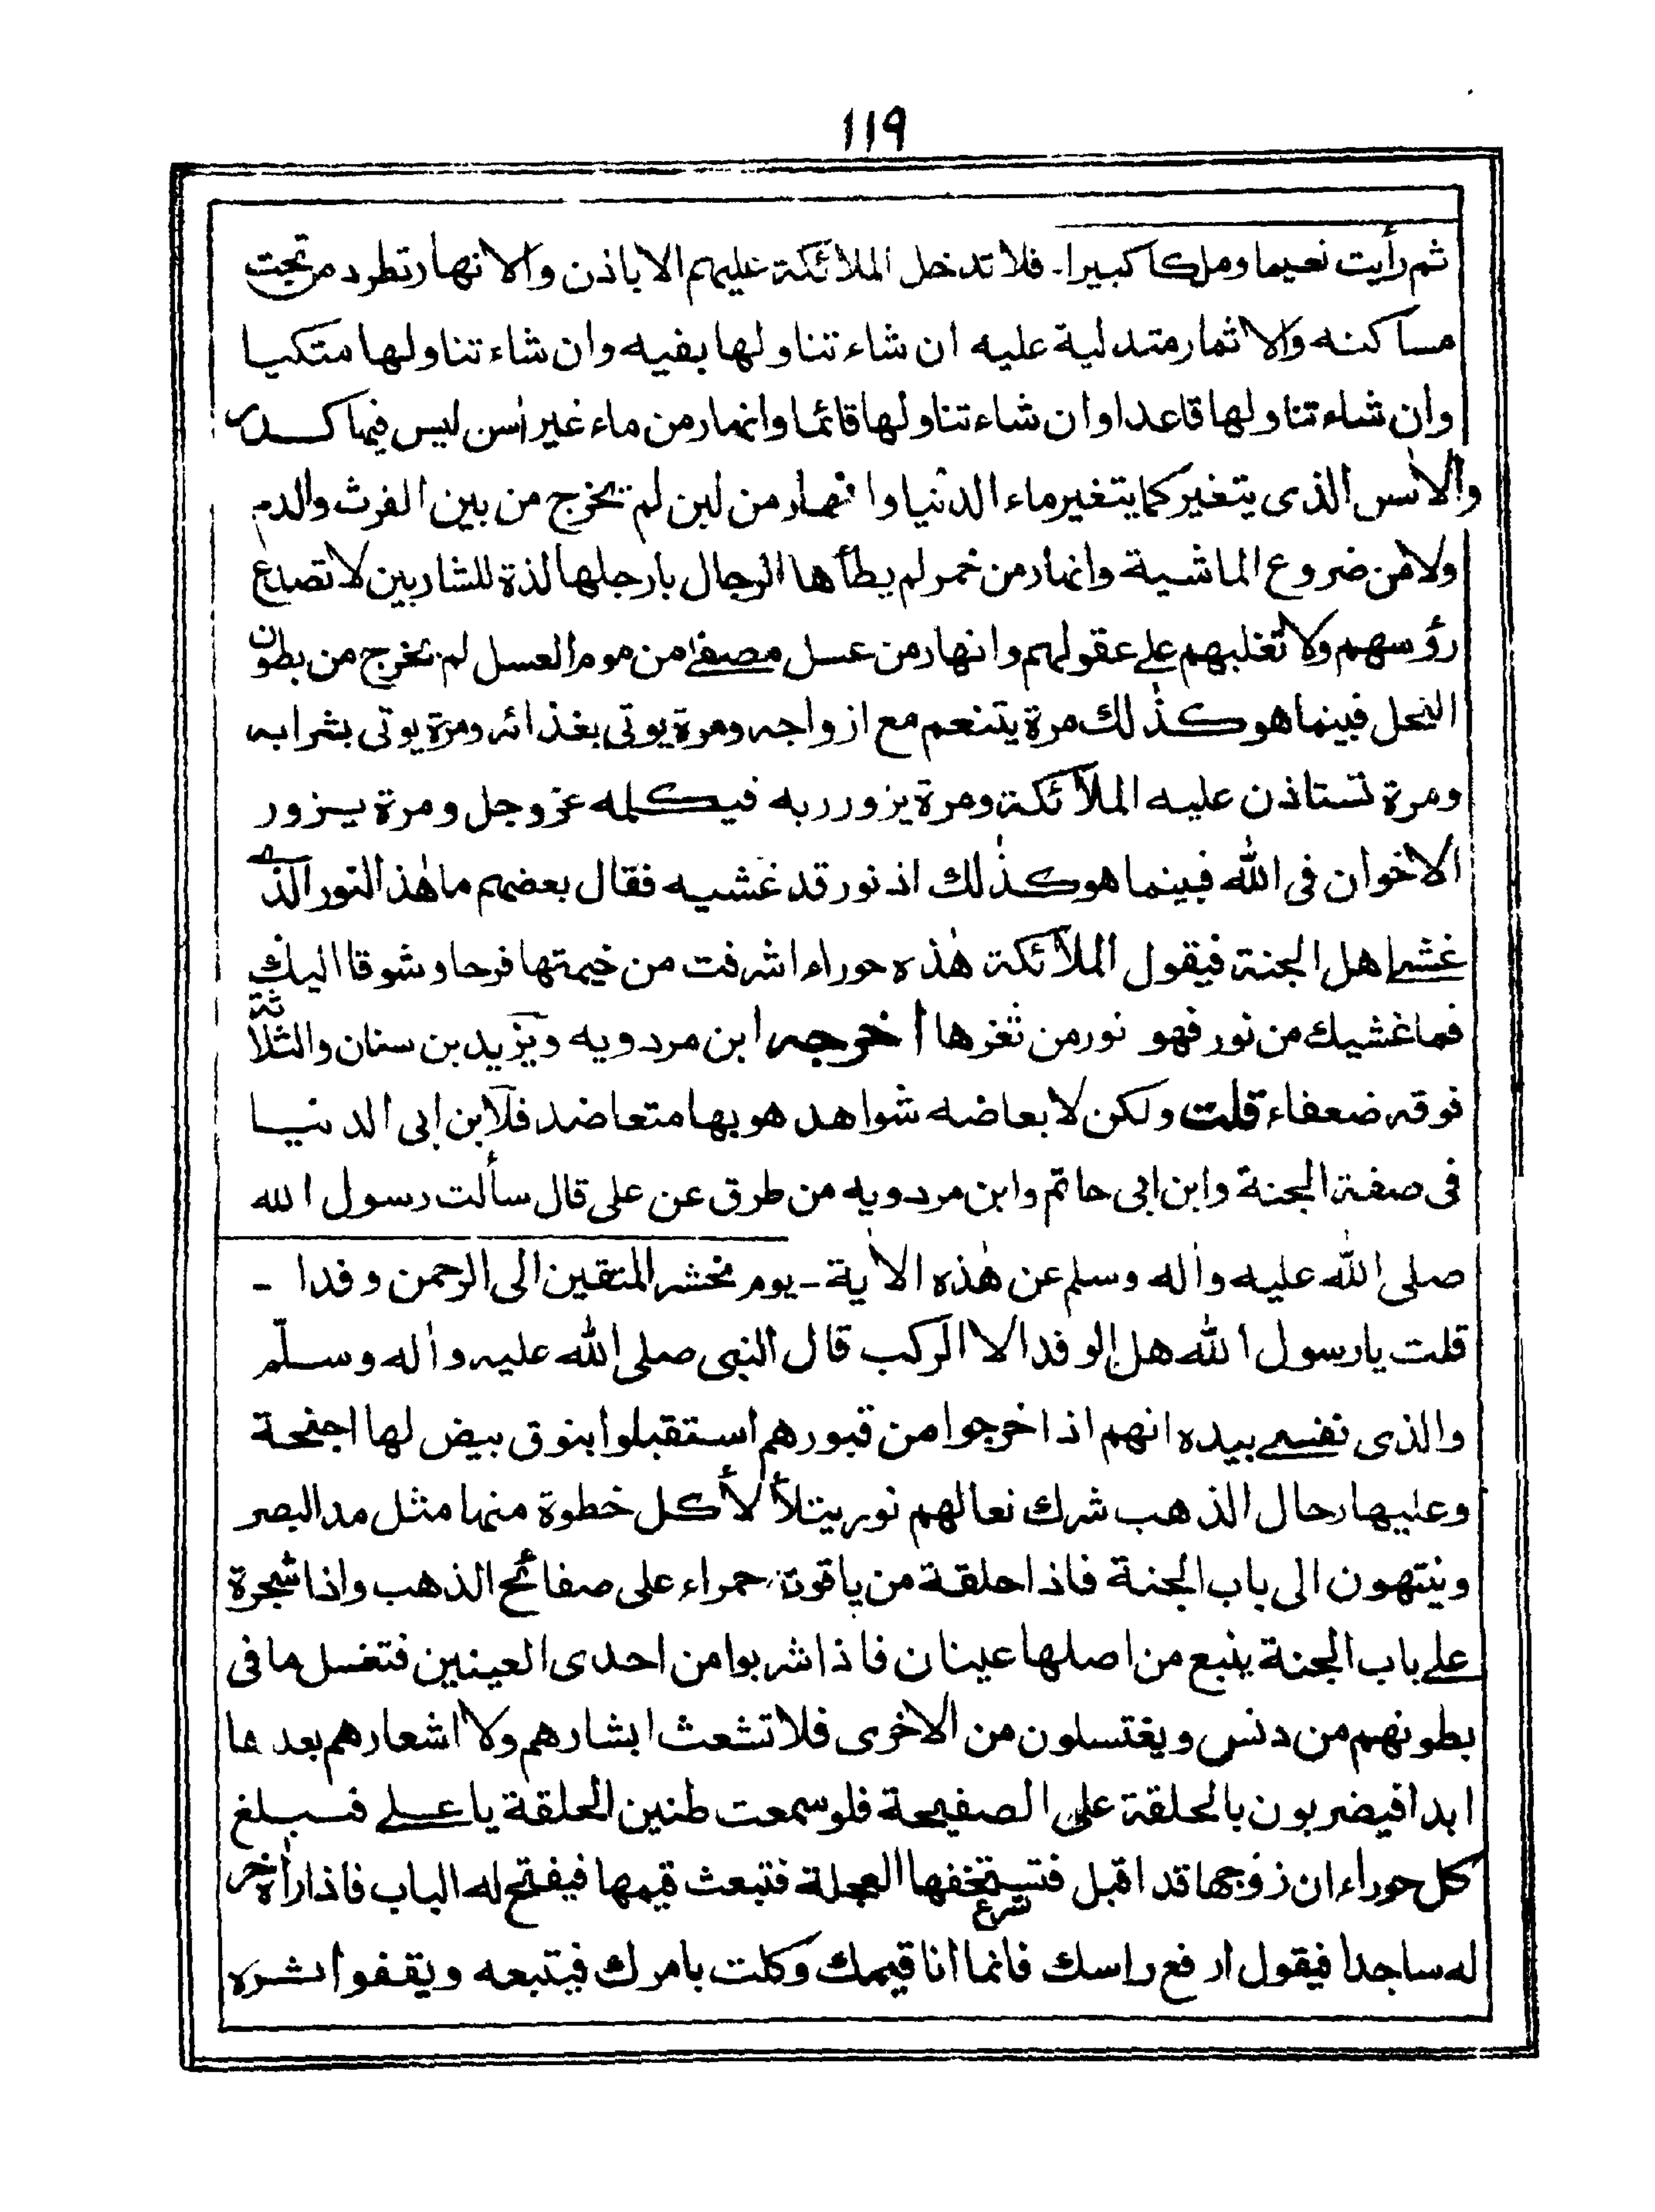 ١١٩
ثم رأيت نعيما وملكا كبيرا۔ فلا تدخل الملائكة عليهم الا باذن والانهار تطرد من تحت
مساكنه والاثمار متدلية عليه ان شاء تناولها بفيه وان شاء تناولها متكيا
وان شاء تناولها قاعدا وان شاء تناولها قائما وانهار من ماء غير اٰسن ليس فيها كدر
والاٰسن الذى يتغير كما يتغير ماء الدنيا وانهار من لبن لم يخرج من بين الفرث والدم
ولا من ضروع الماشية وانهار من خمر لم يطأها الرجال بارجلها لذة للشاربين لا تصدع
رؤسهم ولا تغلبهم على عقولهم وانهار من عسل مصفى من موم العسل لم تخرج من بطون
النحل فبينما هو كذٰلك مرة يتنعم مع ازواجه ومرة يوتى بغذائه ومرة يوتى بشرابه
ومرة تستاذن عليه الملآئكة ومرة يزور ربه فيكلمه عز وجل ومرة يزور
الاخوان فى الله فبينما هو كذٰلك اذ نور قد غشيه فقال بعضهم ما هٰذ النور الذے
غشے اهل الجنة فيقول الملآئكة هٰذه حوراء اشرفت من خيمتها فرحا وشوقا اليك
فما غشيك من نور فهو نور من ثغرها اخرجه ابن مردويه ويزيد بن سنان والثلاثة
نوقه ضعفاء قلت ولكن لا بعاضه شواهد هو بها متعاضد فلآبن ابى الدنيا
فى صفة الجنة وابن ابى حاتم وابن مردويه من طرق عن على قال سألت رسول الله
صلى الله عليه واٰله وسلم عن هٰذه الاٰية ـ يوم نحشر المتقين الى الرحمن وفدا ـ
قلت يا رسول الله هل الوفد الا الركب قال النبى صلى الله عليه واٰله وسلّم
والذى نفسے بيده انهم اذا خرجوا من قبورهم استقبلوا بنوق بيض لها اجنحة
وعليها رحال الذهب شرك نعالهم نور يتلألأ كل خطوة منها مثل مد البصر
وينتهون الى باب الجنة فاذا حلقة من ياقوتة حمراء على صفائح الذهب واذا شجرة
علے باب الجنة ينبع من اصلها عينان فاذا شربوا من احدى العينين فتغسل ما فى
بطونهم من دنس ويغتسلون من الاخرى فلا تشعث ابشارهم ولا اشعارهم بعدها
ابدا فيضربون بالحلقة على الصفيحة فلو سمعت طنين الحلقة يا علے فيبلغ
كل حوراء ان زوجها قد اقبل فتستخفها العجلة فتبعث قيمها فيفتح له الباب فاذا راٰه خر
شرع
له ساجدا فيقول ارفع راسك فانما انا قيمك وكلت بامرك فيتبعه ويقفوا اثره